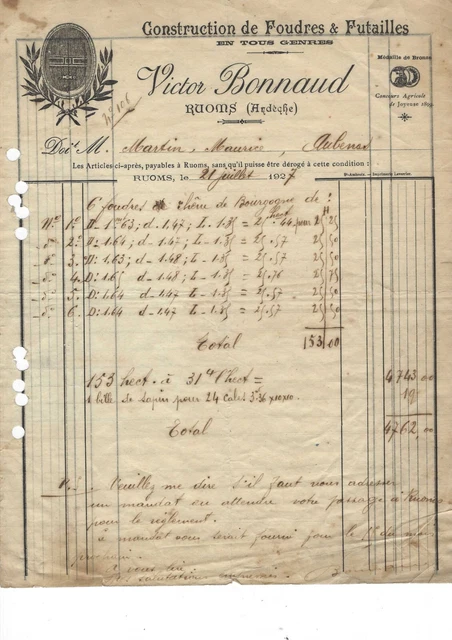 Construction de Foudres & Futailles
EN TOUS GENRES
Médaille de Bronze
Victor Bonnaud
Concours Agricole
de Joyeuse
RUOMS (Ardèche)
Doit M. Martin, Maurice, Aubenas
Les Articles ci-après, payables à Ruoms, sans qu'il puisse être dérogé à cette condition :
RUOMS, le 21 juillet 1927
6 foudres chêne de Bourgogne de :
N° 1: D-1.63; d-1.47; L-1.85 = 25.44 pour 25 25
2: D-1.64; d-1.47; L-1.85 = 25.57 25 50
3: D-1.63; d-1.48; L-1.85 = 25.57 25 50
4: D-1.65; d-1.48; L-1.85 = 25.76 25 75
5: D-1.64 d-1.47 L-1.85 = 25.57 25 50
6: D-1.64 d-1.47 L-1.85 = 25.57 25 50
Total 153 00
153 hect. à 31 l'hect = 4743 00
1 bille de sapin pour 24 cales 3.36 x10x10. 19
Total 4762,00
Veuillez me dire s'il faut vous adresser
un mandat ou attendre votre passage à Ruoms
pour le règlement.
mandat vous serait fourni pour le 1er
prochain.
À vous lire,